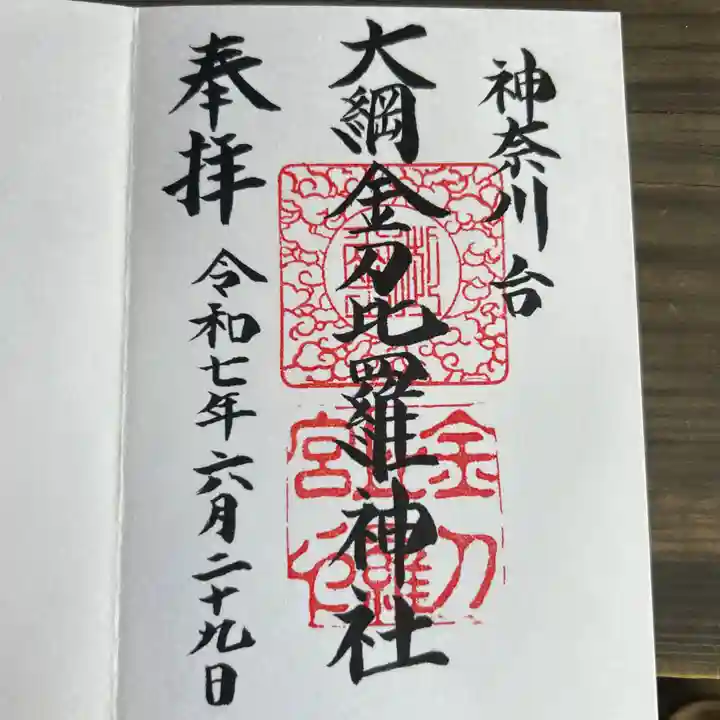 神奈川台
大綱金刀比羅神社
奉拝
令和七年六月二十九日
金刀
宮